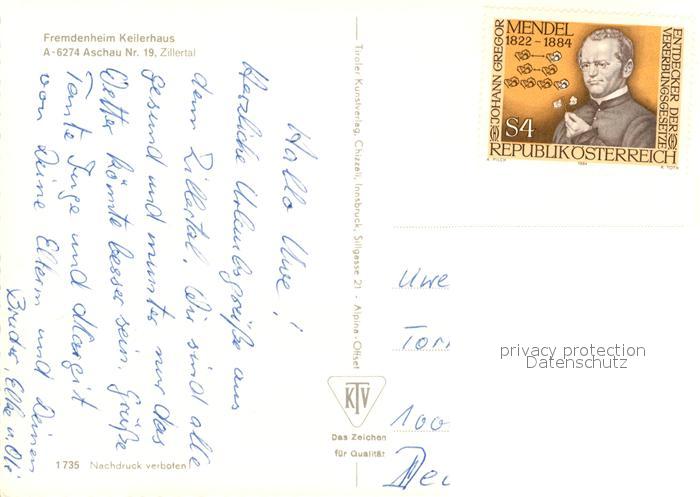 Fremdenheim Keilerhaus
A-6274 Aschau Nr. 19, Zillertal
Hallo Uwe!
Herzliche Urlaubsgrüße aus
dem Zillertal. Wir sind alle
gesund und munter nur das
Wetter könnte besser sein. Grüße
Tante Inge und Margit
von Deine Eltern und Deinen
Bruder, Elke u. Oli
1735 Nachdruck verboten
Tiroler Kunstverlag, Chizzali, Innsbruck, Sillgasse 21 - Alpina-Offset
KTV
Das Zeichen
für Qualität
JOHANN GREGOR
MENDEL
1822-1884
ENTDECKER DER
VERERBUNGSGESETZE
S4
REPUBLIK ÖSTERREICH
A. PILCH 1984 K. TOTH
Uwe
Tor
100
De
privacy protection
Datenschutz